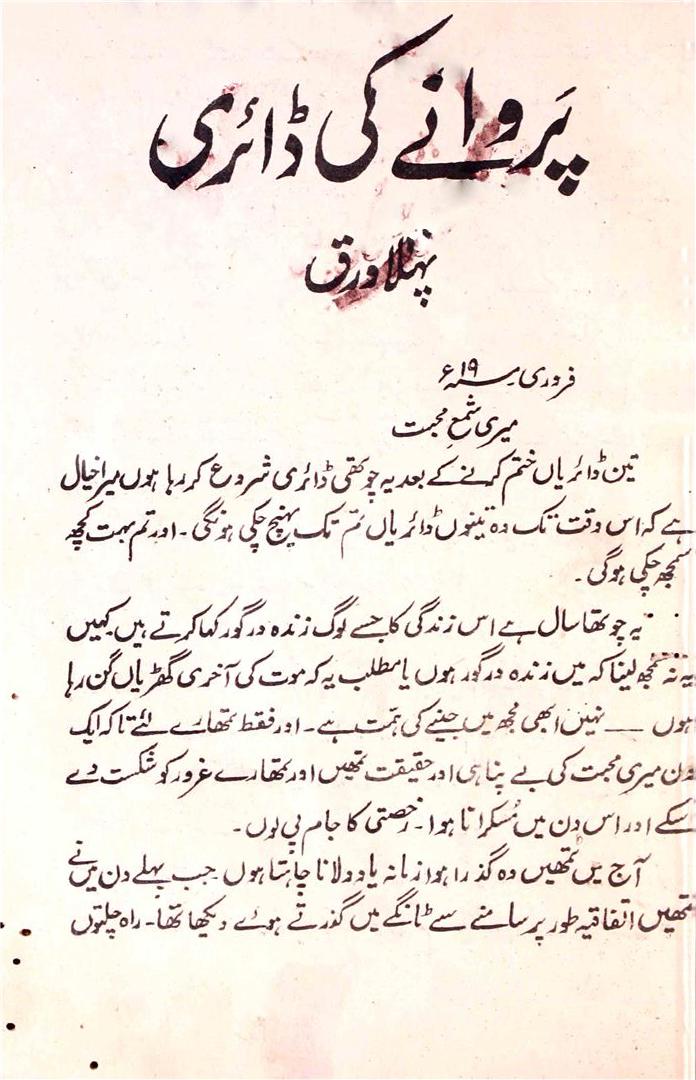 پَروانے کی ڈائری
پہلا ورق
فروری سنہ ۱۹ء
میری شمعِ محبت
تین ڈائریاں ختم کرنے کے بعد یہ چوتھی ڈائری شروع کر رہا ہوں میرا خیال
ہے کہ اس وقت تک وہ تینوں ڈائریاں تم تک پہنچ چکی ہونگی۔ اور تم بہت کچھ
سمجھ چکی ہوگی۔
یہ چوتھا سال ہے اس زندگی کا جسے لوگ زندہ درگور کہا کرتے ہیں کہیں
یہ نہ سمجھ لینا کہ میں زندہ درگور ہوں یا مطلب یہ کہ موت کی آخری گھڑیاں گن رہا
ہوں — نہیں ابھی مجھ میں جینے کی ہمت ہے۔ اور فقط تمھارے لئے تاکہ ایک
دن میری محبت کی بے پناہی اور حقیقت تمھیں اور تمھارے غرور کو شکست دے
سکے اور اس دن میں مُسکراتا ہوا۔ رخصتی کا جام پی لوں۔
آج میں تمھیں وہ گذرا ہوا زمانہ یاد دلانا چاہتا ہوں جب پہلے دن میں نے
تمھیں اتفاقیہ طور پر سامنے سے ٹانگے میں گذرتے ہوئے دیکھا تھا۔ راہ چلتوں